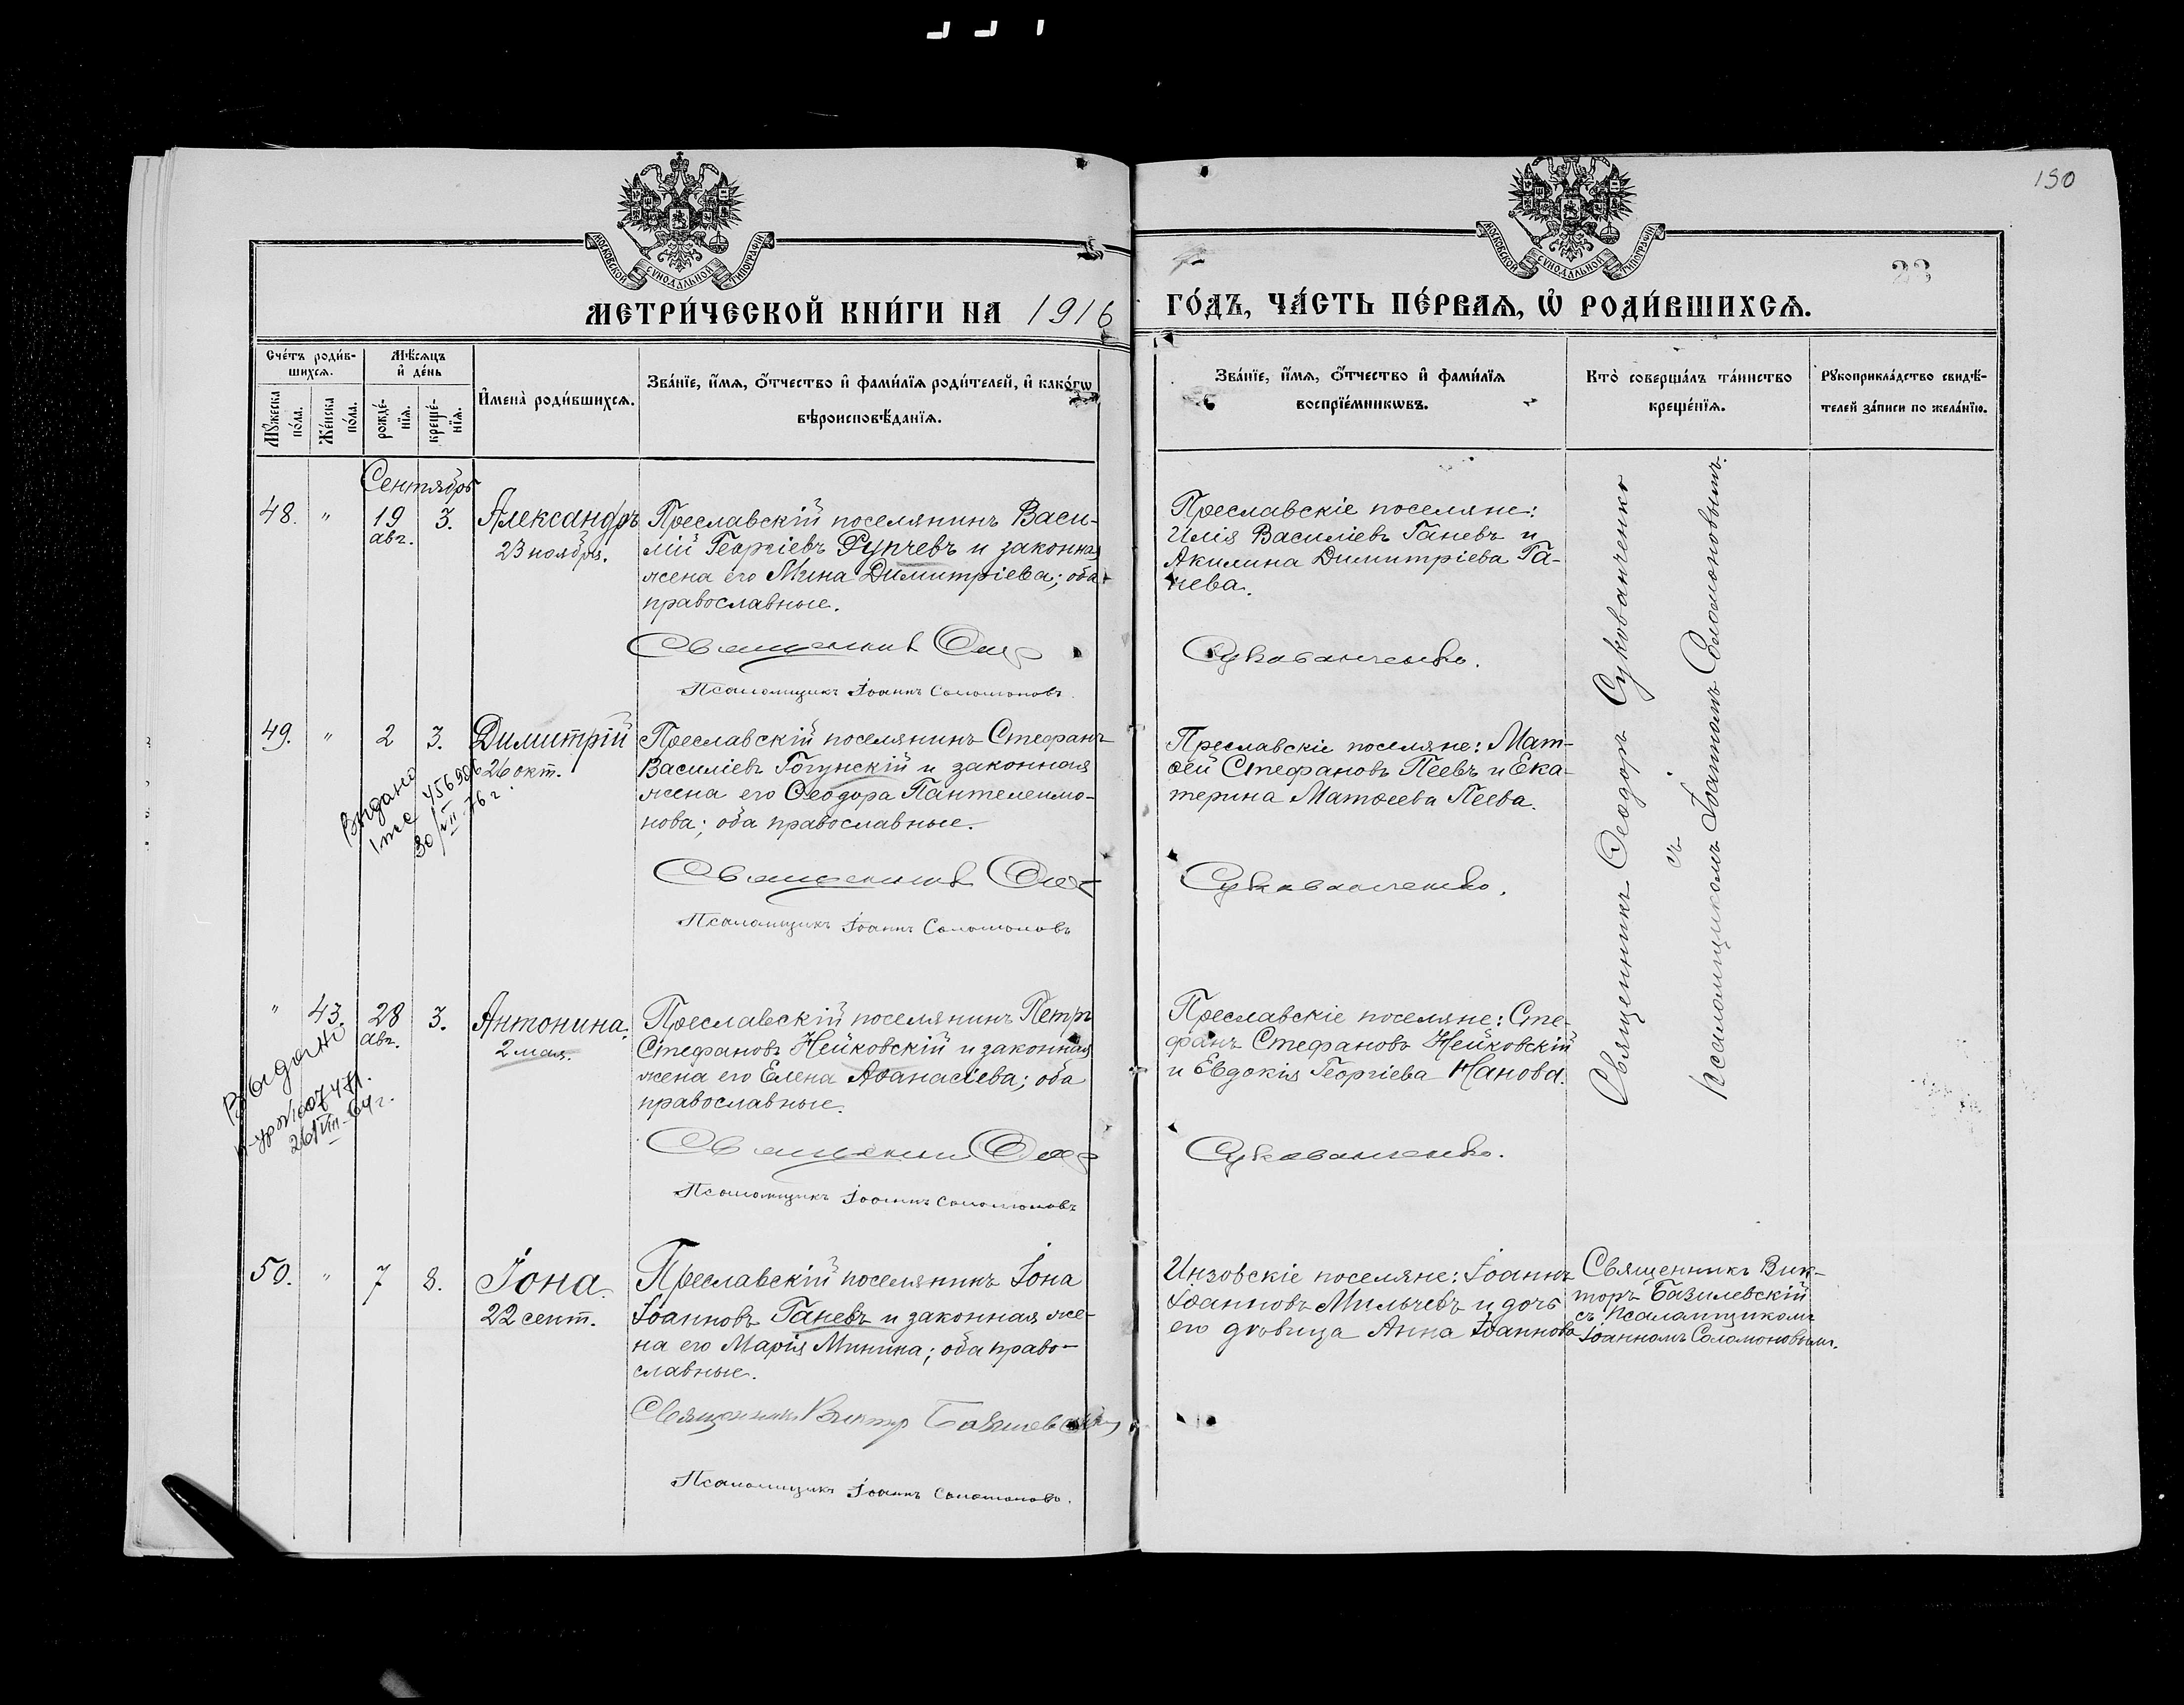 150
23
МОСКОВСКОЙ СѴНОДАЛЬНОЙ ТИПОГРАФІИ
МОСКОВСКОЙ СѴНОДАЛЬНОЙ ТИПОГРАФІИ
МЕТРИ́ЧЕСКОЙ КНИ́ГИ НА 1916
ГО́ДЪ, ЧА́СТЬ ПЕ́РВАѦ, Ѡ҆ РОДИ́ВШИХСѦ.
Сче́тъ роди́в-
шихсѧ.
Мꙋ́жеска по́ла.
Же́нска по́ла.
Мѣ́сѧцъ
и҆ де́нь
рожде́-
нїѧ.
креще́-
нїѧ.
И҆мена̀ роди́вшихсѧ.
Зва́нїе, и҆́мѧ, ѻ҆́тчество и҆ фами́лїѧ роди́телей, и҆ како́гѡ
вѣроисповѣ́данїѧ.
Зва́нїе, и҆́мѧ, ѻ҆́тчество и҆ фами́лїѧ
воспрїе́мникѡвъ.
Кто̀ соверша́лъ та́инство
креще́нїѧ.
Рꙋкоприкла́дство свидѣ́-
телей за́писи по жела́нїю.
Сентябрь
48. " 19 авг. 3. Александръ
23 ноября.
Преславскій поселянинъ Васи-
лій Георгіевъ Рупчевъ и законная
жена его Мина Димитріева; оба
православные.
Священникъ Ѳеод
Псаломщикъ Іоаннъ Соломоновъ.
Преславскіе поселяне:
Илія Василіевъ Ганевъ и
Акилина Димитріева Га-
нева.
Сукованченко.
49. " 2 3. Димитрій
26 окт.
Видано
30/VII-76 г.
Преславскій поселянинъ Стефанъ
Василіевъ Гогунскій и законная
жена его Ѳеодора Пантелеимо-
нова; оба православные.
Священникъ Ѳеод
Псаломщикъ Іоаннъ Соломоновъ
Преславскіе поселяне: Мат-
ѳей Стефановъ Пеевъ и Ека-
терина Матѳеева Пеева.
Сукованченко.
" 43. 28 авг. 3. Антонина.
2 мая.
26/VIII-64 г.
Преславскій поселянинъ Петръ
Стефановъ Нейковскій и законная
жена его Елена Аѳанасіева; оба
православные.
Священникъ Ѳеод
Псаломщикъ Іоаннъ Соломоновъ
Преславскіе поселяне: Сте-
фанъ Стефановъ Нейковскій
и Евдокія Георгіева Нанова.
Сукованченко.
Священникъ Ѳеодоръ Сукованченко
съ
псаломщикомъ Іоанномъ Соломоновымъ.
50. " 7 8. Іона
22 сент.
Преславскій поселянинъ Іона
Іоанновъ Ганевъ и законная же-
на его Марія Минина; оба право-
славные.
Священникъ Викторъ Базилевскій
Псаломщикъ Іоаннъ Соломоновъ.
Инзовскіе поселяне: Іоаннъ
Іоанновъ Мильчевъ и дочь
его дѣвица Анна Іоаннова
Священникъ Вик-
торъ Базилевскій
съ псаломщикомъ
Іоанномъ Соломоновымъ.